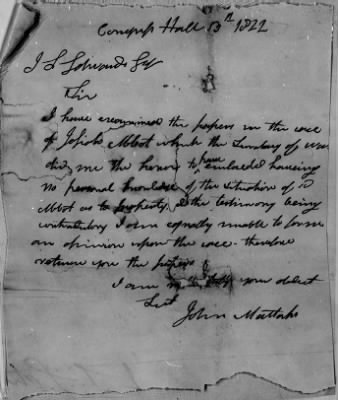 Congress Hall 13th 1822
J L Edwards Esq
Sir
I have examined the papers in the case
of Josiah Abbot which the Secretary of War
did me the honor to have enclosed having
no personal knowledge of the situation of sd
Abbot as to property & the testimony being
contradictory I am equally unable to form
an opinion upon the case therefore
return you the papers
I am your obedt
Sert
John Mattocks